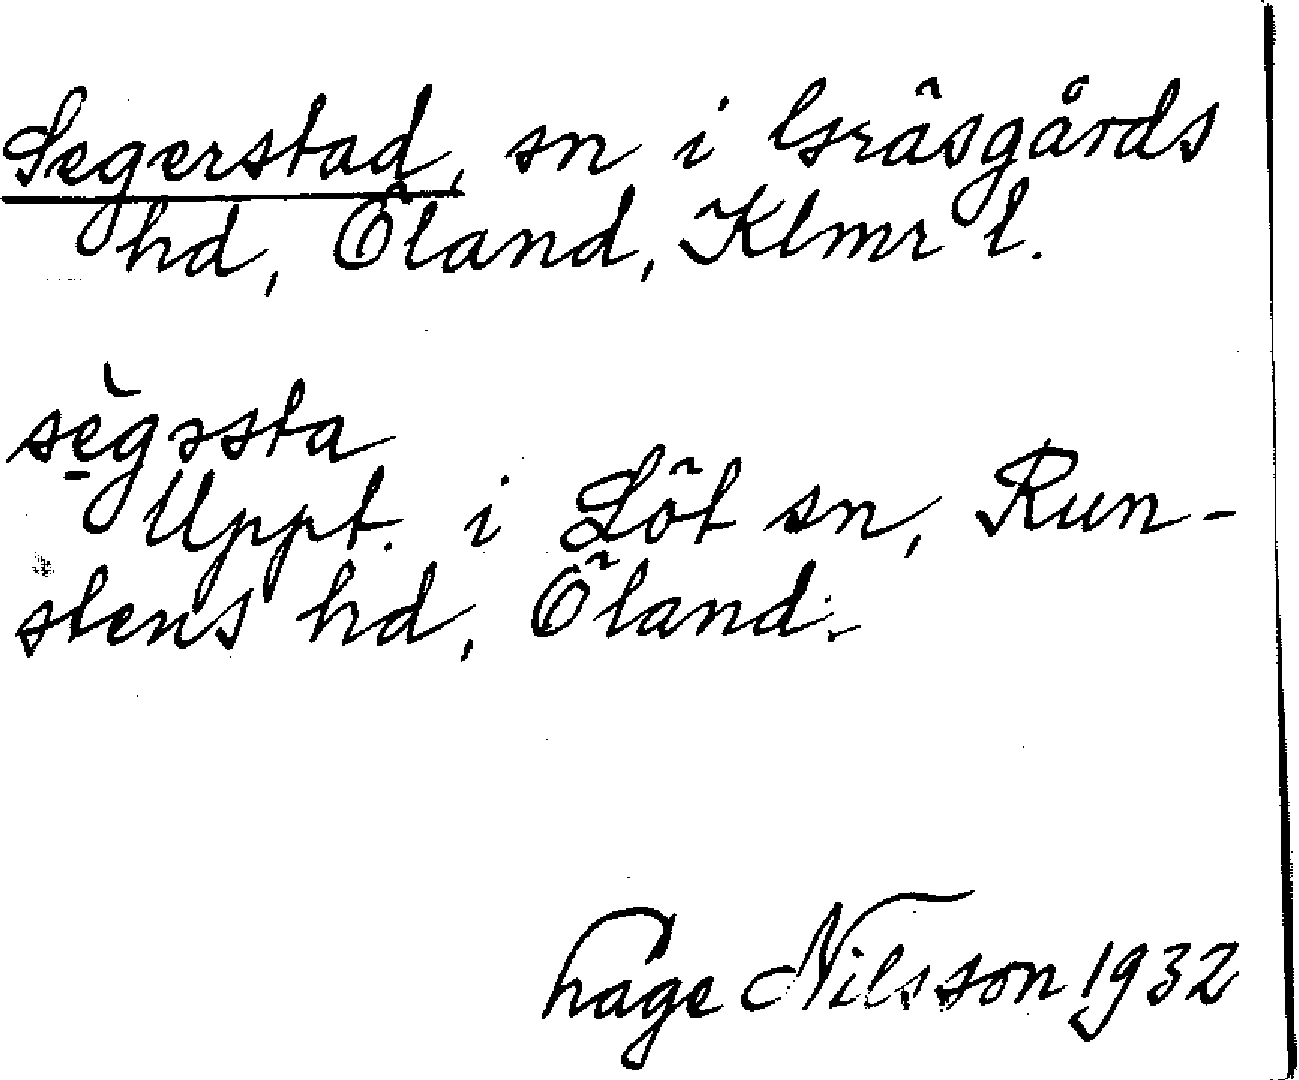 Segerstad, sn i Gräsgårds
hd, Öland, Klmr l.
sè̠gəsta
Uppt. i Löt sn, Run-
stens hd, Öland.
Hage Nilsson 1932